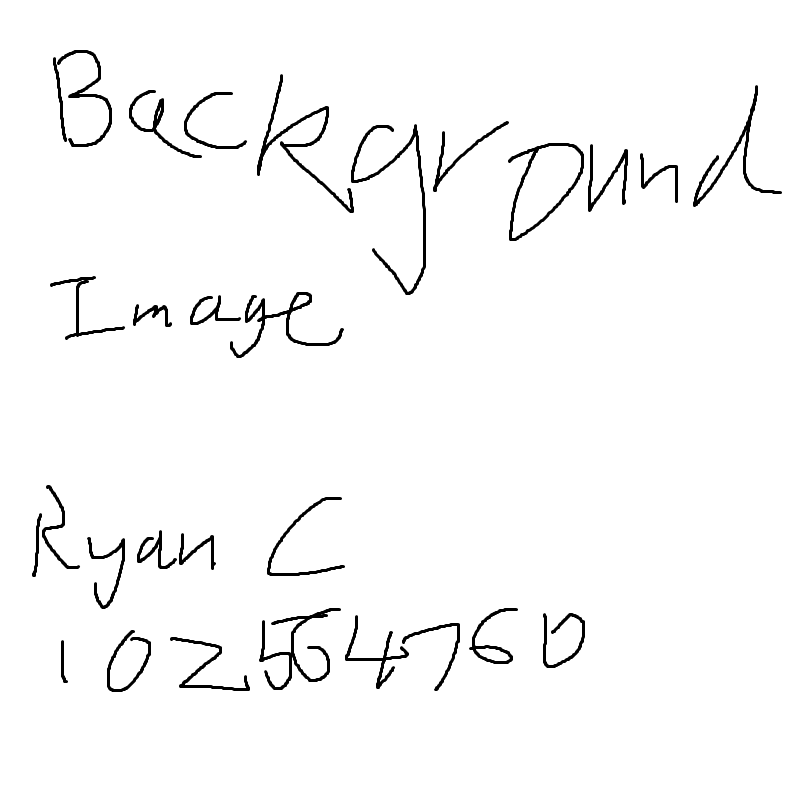 Background
Image
Ryan C
1025564760